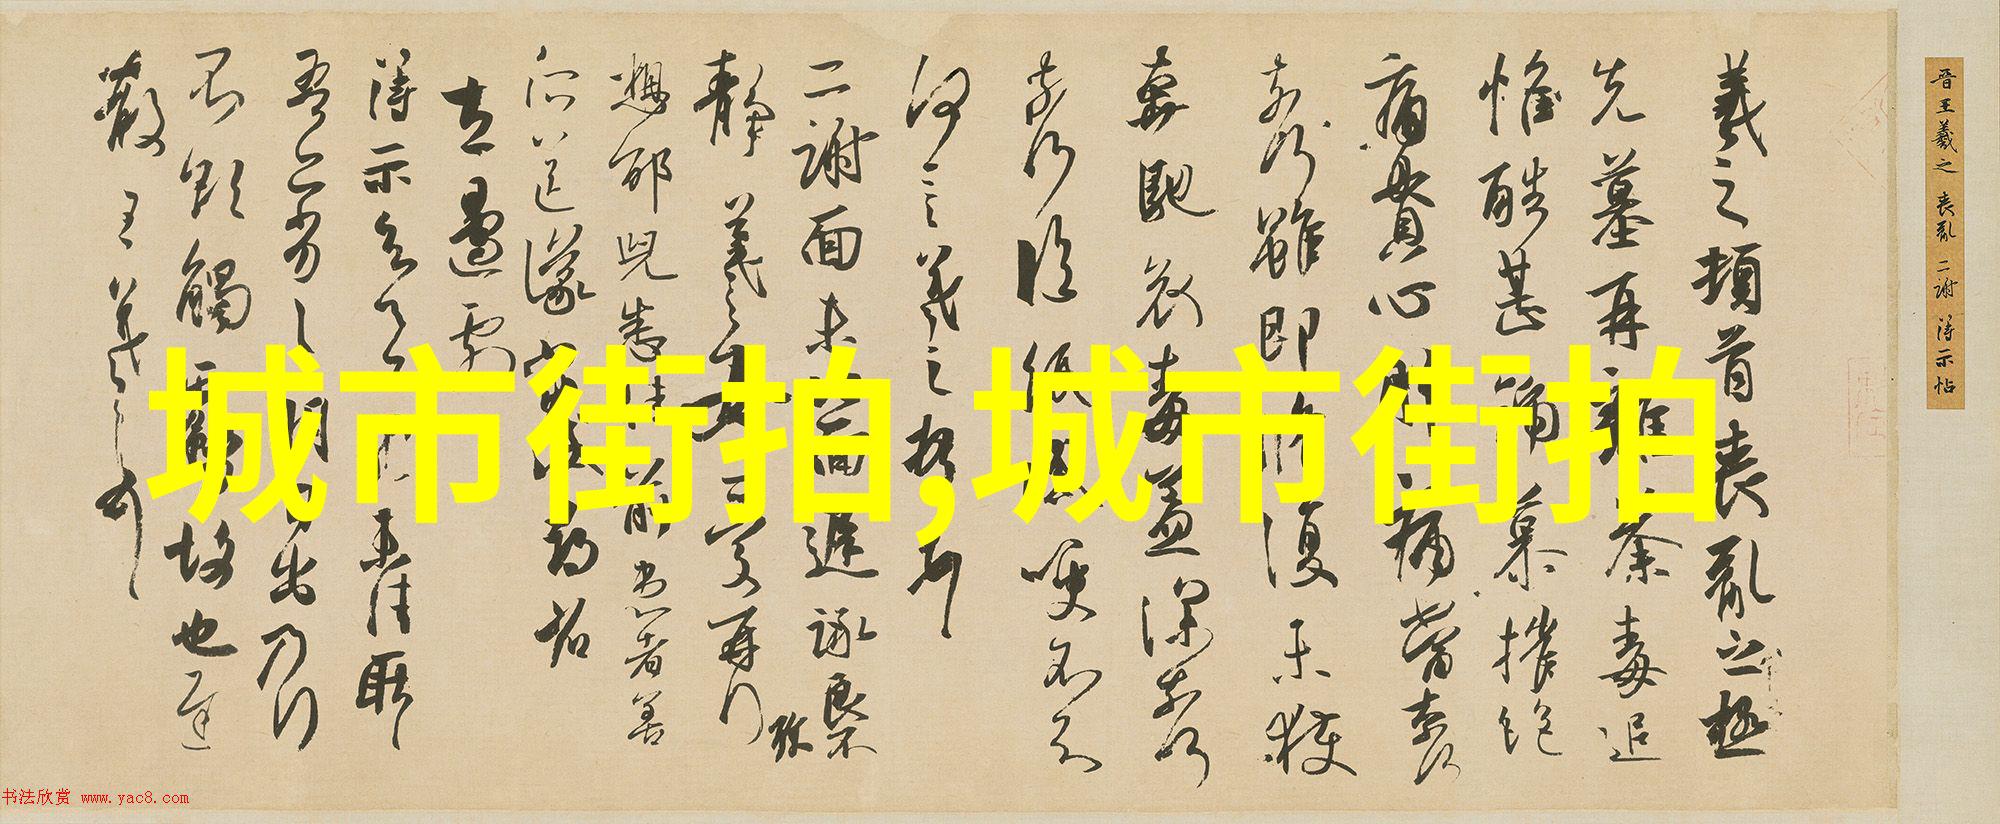 晋王羲之 喪亂 二謝 得示帖
羲之頓首喪亂之極
先墓再離荼毒追
惟酷甚號慕摧絕
痛貫心肝痛當奈何
奈何雖即脩復未獲
奔馳哀毒益深奈何
奈何臨紙感哽不知
何言羲之頓首
二謝面未比面遲詠良不
靜羲之女愛再拜
想邵兒悉佳前患者善
所送議當試尋省
左邊劇
得示知足下猶未佳耿耿
吾亦劣劣明日出乃行
不欲觸霧故也遲
散王羲之頓首
城市街拍,城市街拍
书法欣赏 www.yac8.com